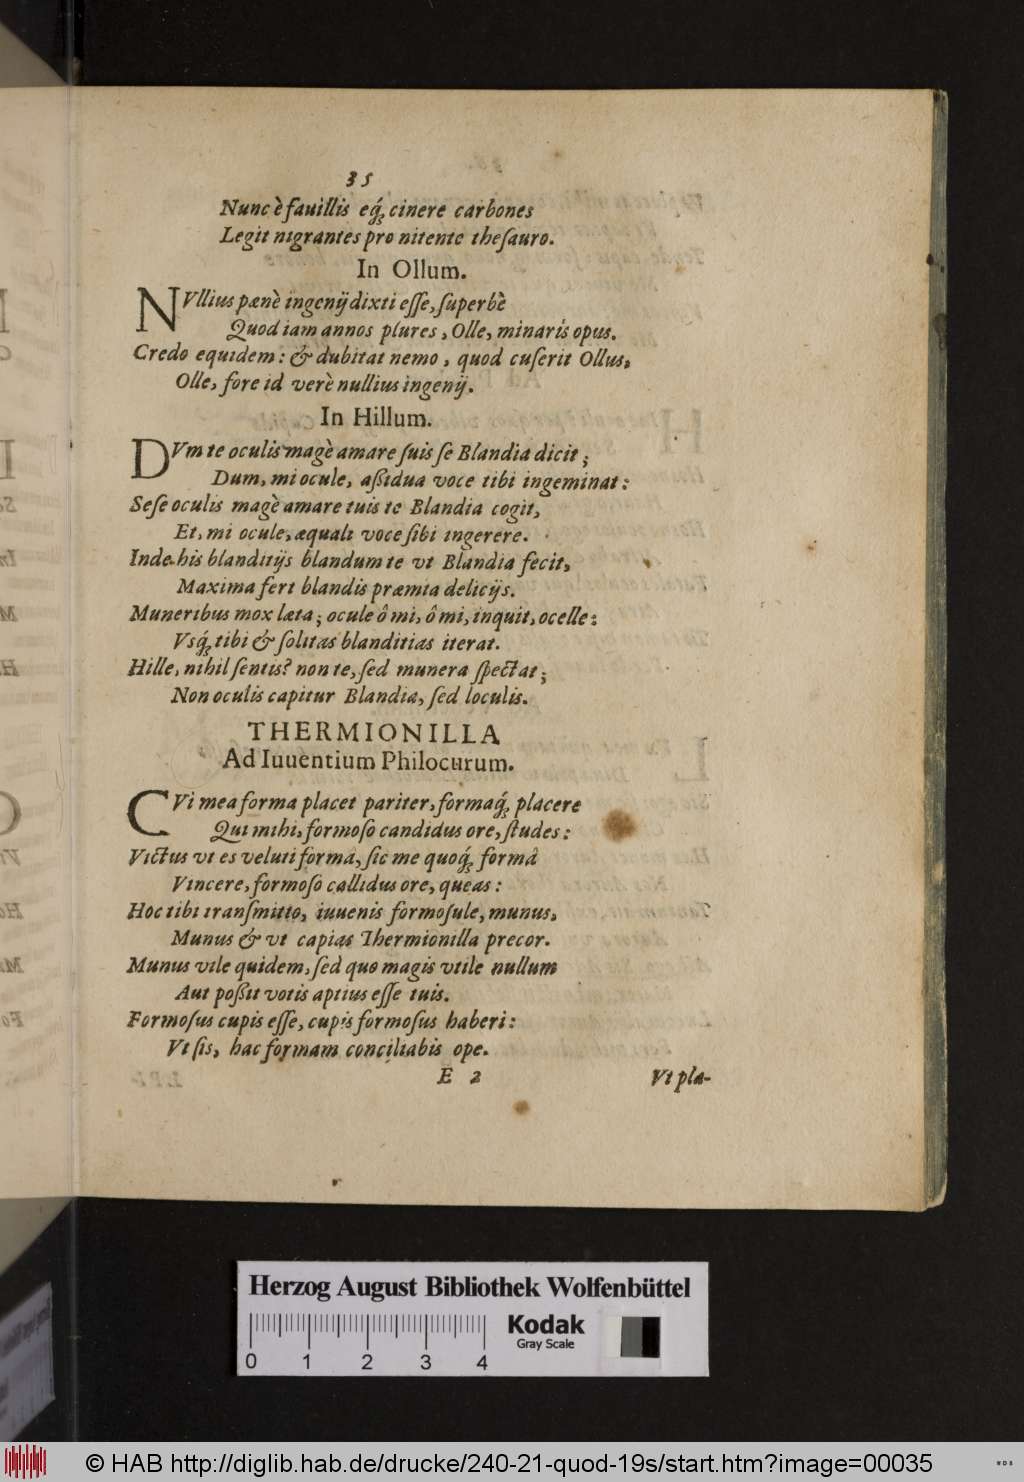 35
Nunc è fauillis eq́ꝫ cinere carbones
Legit nigrantes pro nitente theſauro.
In Ollum.
NVllius pænè ingenij dixti eſſe, ſuperbè
Quod iam annos plures, Olle, minaris opus.
Credo equidem: & dubitat nemo, quod cuſerit Ollus,
Olle, fore id verè nullius ingenij.
In Hillum.
DVm te oculis magè amare ſuis ſe Blandia dicit;
Dum, mi ocule, aßidua voce tibi ingeminat:
Seſe oculis magè amare tuis te Blandia cogit,
Et, mi ocule, æquali voce ſibi ingerere.
Inde his blanditijs blandum te vt Blandia fecit,
Maxima fert blandis præmia delicijs.
Muneribus mox læta; ocule ô mi, ô mi, inquit, ocelle:
Vsq́ꝫ tibi & ſolitas blanditias iterat.
Hille, nihil ſentis? non te, ſed munera ſpectat;
Non oculis capitur Blandia, ſed loculis.
THERMIONILLA
Ad Iuuentium Philocurum.
CVi mea forma placet pariter, formaq́ꝫ placere
Qui mihi, formoſo candidus ore, ſtudes:
Victus vt es veluti forma, ſic me quoq́ꝫ formâ
Vincere, formoſo callidus ore, queas:
Hoc tibi tranſmitto, iuuenis formoſule, munus,
Munus & vt capias Thermionilla precor.
Munus vile quidem, ſed quo magis vtile nullum
Aut poßit votis aptius eſſe tuis.
Formoſus cupis eſſe, cupis formoſus haberi:
Vt ſis, hac formam conciliabis ope.
E 2 Vt pla-
Herzog August Bibliothek Wolfenbüttel
Kodak
Gray Scale
0 1 2 3 4
© HAB http://diglib.hab.de/drucke/240-21-quod-19s/start.htm?image=00035